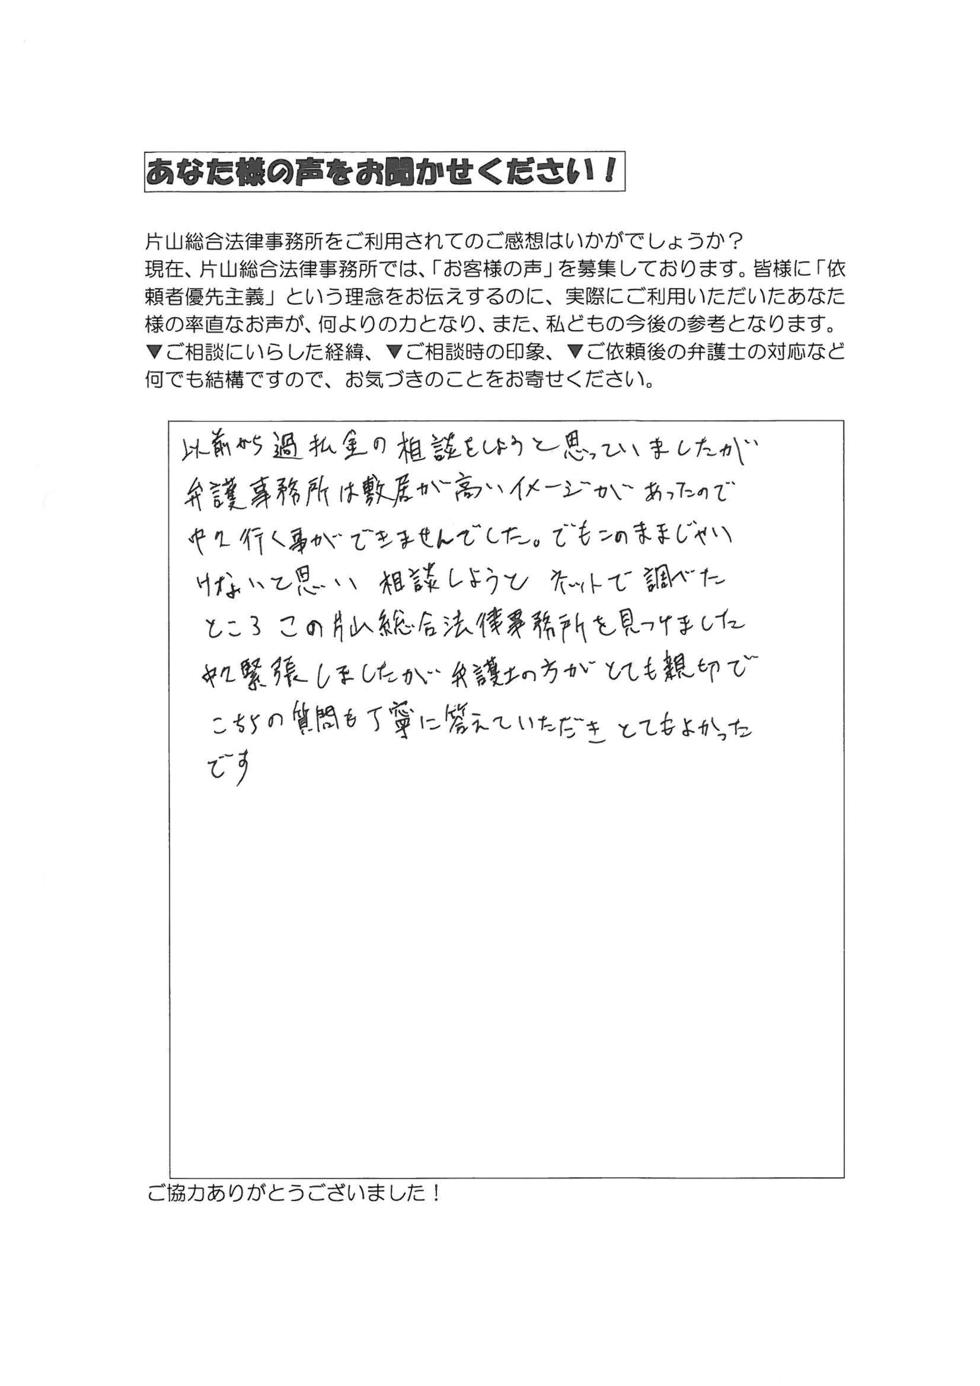 あなた様の声をお聞かせください！
片山総合法律事務所をご利用されてのご感想はいかがでしょうか？
現在、片山総合法律事務所では、「お客様の声」を募集しております。皆様に「依
頼者優先主義」という理念をお伝えするのに、実際にご利用いただいたあなた
様の率直なお声が、何よりの力となり、また、私どもの今後の参考となります。
▼ご相談にいらした経緯、▼ご相談時の印象、▼ご依頼後の弁護士の対応など
何でも結構ですので、お気づきのことをお寄せください。
以前から過払金の相談をしようと思っていましたが
弁護事務所は敷居が高いイメージがあったので
中々行く事ができませんでした。でもこのままじゃい
けないと思い 相談しようと ネットで調べた
ところ この片山総合法律事務所を見つけました
中々緊張しましたが弁護士の方がとても親切で
こちらの質問も丁寧に答えていただき とてもよかった
です
ご協力ありがとうございました！